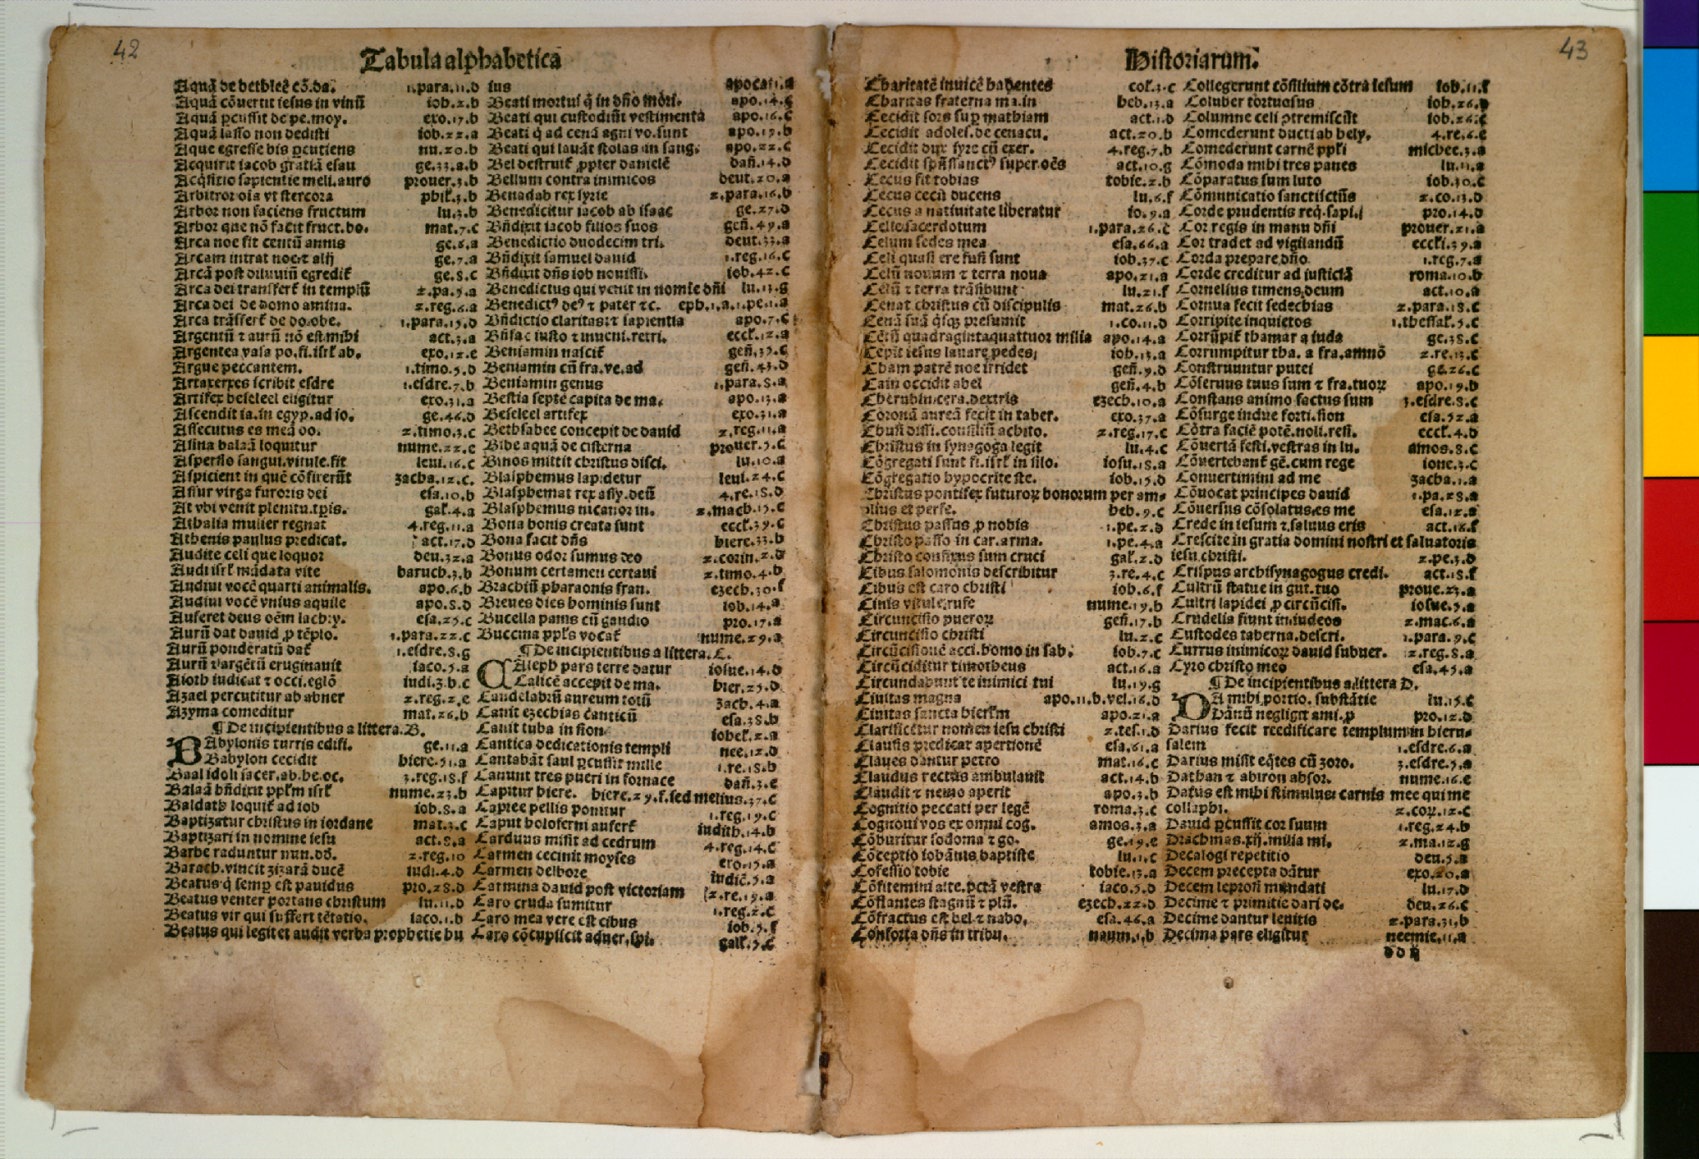 42
Tabula alphabetica
Aquã de bethleẽ cõ.da. 1.para.11.d
Aquã cõuertit iesus in vinũ ioh.2.b
Aquã ꝑcussit de pe.moy. exo.17.b
Aquã lasso non dedisti iob.22.a
Aque egresse bis ꝑcutiens nu.20.b
Acquirit iacob gratiã esau ge.33.a.b
Acq̃sitio sapientie meli.auro prouer.3.b
Arbitror oĩa vt stercora phil'.3.b
Arbor non faciens fructum lu.3.b
Arbor que nõ facit fruct.bo. mat.7.c
Arca noe fit centũ annis ge.6.a
Arcam intrat noe ⁊ alij ge.7.a
Arcã post diluuiũ egredit' ge.8.c
Arca dei transfert' in templũ 2.pa.5.a
Arca dei de domo amina. 2.reg.6.a
Arca trãsfert' de do.obe. 1.para.15.d
Argentũ ⁊ aurũ nõ est mihi act.3.a
Argentea vasa po.fi.isrl' ab. exo.12.e
Argue peccantem. 1.timo.5.d
Artaxerxes scribit esdre 1.esdre.7.b
Artifex beseleel eligitur exo.31.a
Ascendit ia.in egyp.ad io. ge.46.d
Assecutus es meã do. 2.timo.3.c
Asina balaã loquitur nume.22.c
Aspersio sangui.vitule.fit leui.16.c
Aspicient in quẽ cõfixerũt zacha.12.c.
Assur virga furoris dei esa.10.b
At vbi venit plenitu.tp̃is. gal'.4.a
Athalia mulier regnat 4.reg.11.a
Athenis paulus predicat. act.17.d
Audite celi que loquor deu.32.a
Audi isrl' mãdata vite baruch.3.b
Audiui vocẽ quarti animalis. apo.6.b
Audiui vocẽ vnius aquile apo.8.d
Auferet deus oẽm lachry. esa.25.c
Aurũ dat dauid ꝓ tẽplo. 1.para.22.c
Aurũ ponderatũ dat' 1.esdre.8.g
Aurũ ⁊ argẽtũ eruginauit iaco.5.a
Aioth iudicat ⁊ occi.eglõ iudi.3.b.c
Azael percutitur ab abner 2.reg.2.e
Azyma comeditur mat.26.b
¶ De incipientibus a littera.B.
Babylonis turris edifi. ge.11.a
Babylon cecidit hiere.51.a
Baal idoli sacer.ab.he.oc. 3.reg.18.f
Balaã bñdixit pp̃lm isrl' nume.23.b
Baldath loquit' ad iob iob.8.a
Baptizatur christus in iordane mat.3.c
Baptizari in nomine iesu act.8.a
Barbe raduntur nun.dõ. 2.reg.10
Barach.vincit zizarã ducẽ iudi.4.d
Beatus q̃ semꝑ est pauidus pro.28.d
Beatus venter portans christum lu.11.d
Beatus vir qui suffert tẽtatio. iaco.1.b
Beatus qui legit et audit verba prophetie hu
ius apocal.1.a
Beati mortui q̃ in dño mori. apo.14.c
Beati qui custodiũt vestimenta apo.16.c
Beati q̃ ad cenã agni vo.sunt apo.19.b
Beati qui lauãt stolas in sang. apo.22.c
Bel destruit' ꝓpter danielẽ dañ.14.d
Bellum contra inimicos deut.20.a
Benadab rex syrie 2.para.16.b
Benedicitur iacob ab isaac ge.27.d
Bñdixit iacob filios suos geñ.49.a
Benedictio duodecim tri. deut.33.a
Bñdixit samuel dauid 1.reg.16.c
Bñdixit dñs iob nouissi. iob.42.c
Benedictus qui venit in nomĩe dñi lu.13.g
Benedict⁹ de⁹ ⁊ pater ⁊c. eph.1.a.1.pe.1.a
Bñdictio claritas: ⁊ sapientia apo.7.c
Bñfac iusto ⁊ inueni.retri. eccl'.12.a
Beniamin nascit' geñ.35.c
Beniamin cũ fra.ve.ad geñ.43.d
Beniamin genus 1.para.8.a
Bestia septẽ capita de ma. apo.13.a
Beseleel artifex exo.31.a
Bethsabee concepit de dauid 2.reg.11.a
Bibe aquã de cisterna prouer.5.c
Binos mittit christus disci. lu.10.a
Blasphemus lapidetur leui.24.c
Blasphemat rex assy.deũ 4.re.18.d
Blasphemus nicanor in. 2.mach.15.c
Bona bonis creata sunt eccl'.39.c
Bona facit dñs hiere.33.b
Bonus odor sumus deo 2.corin.2.d
Bonum certamen certaui 2.timo.4.b
Brachiũ pharaonis fran. ezech.30.f
Breues dies hominis sunt iob.14.a
Bucella panis cũ gaudio pro.17.a
Buccina pp̃ls vocat' nume.29.a
¶ De incipientibus a littera.C.
Caleph pars terre datur iosue.14.d
Calicẽ accepit de ma. hier.25.d
Candelabrũ aureum totũ zach.4.a
Canit ezechias canticũ esa.38.b
Canit tuba in sion iohel'.2.a
Cantica dedicationis templi nee.12.d
Cantabãt saul ꝑcussit mille 1.re.18.b
Canunt tres pueri in fornace dañ.3.e
Capitur hiere. hiere.29.f.sed melius.37.c
Capree pellis ponitur 1.reg.19.c
Caput holoferni aufert' iudith.14.b
Carduus misit ad cedrum 4.reg.14.c
Carmen cecinit moyses exo.15.a
Carmen delbore iudic̃.5.a
Carmina dauid post victoriam 2.re.19.a
Caro cruda sumitur 1.reg.2.c
Caro mea vere est cibus ioh.5.f
Caro cõcupiscit aduer.spi. gal'.5.c
43
Historiarum.
Charitatẽ inuicẽ habentes col'.3.c
Charitas fraterna ma.in heb.13.a
Cecidit sors suꝑ mathiam act.1.d
Cecidit adoles.de cenacu. act.20.b
Cecidit dux syre cũ exer. 4.reg.7.b
Cecidit sp̃ssanct⁹ super oẽs act.10.g
Cecus fit tobias tobie.2.b
Cecus cecũ ducens lu.6.f
Cecus a natiuitate liberatur io.9.a
Celle sacerdotum 1.para.26.c
Celum sedes mea esa.66.a
Celi quasi ere fusi sunt iob.37.c
Celũ nouum ⁊ terra noua apo.21.a
Celũ ⁊ terra trãsibunt lu.21.f
Cenat christus cũ discipulis mat.26.b
Cenã suã q̃sq; presumit 1.co.11.d
Cẽtũ quadragintaquattuor milia apo.14.a
Cepit iesus lauare pedes; ioh.13.a
Cham patrẽ noe irridet geñ.9.d
Cain occidit abel geñ.4.b
Cherubin cera.dextris ezech.10.a
Coronã aureã fecit in taber. exo.37.a
Chusi dissi.consiliũ achito. 2.reg.17.c
Christus in synagoga legit lu.4.c
Cõgregati sunt fi.isrl' in silo. iosu.18.a
Cõgregatio hypocrite ste. iob.15.d
Christus pontifex futuroꝝ bonorum per am=
plius et perfe. heb.9.c
Christus passus ꝓ nobis 1.pe.2.d
Christo passo in car.arma. 1.pe.4.a
Christo confixus sum cruci gal'.2.d
Cibus salomonis describitur 3.re.4.c
Cibus est caro christi ioh.6.f
Cinis vitule rufe nume.19.b
Circuncisio pueroꝝ geñ.17.b
Circuncisio christi lu.2.c
Circũcisionẽ acci.homo in sab. ioh.7.c
Circũciditur timotheus act.16.a
Circundabunt te inimici tui lu.19.g
Ciuitas magna apo.11.b.vel.16.d
Ciuitas sancta hierl'm apo.21.a
Clarificetur nomen iesu christi 2.tes'.1.d
Clausis predicat apertionẽ esa.61.a
Claues dantur petro mat.16.c
Claudus rectus ambulauit act.14.b
Claudit ⁊ nemo aperit apo.3.b
Cognitio peccati per legẽ roma.3.c
Cognoui vos ex omni cog. amos.3.a
Cõburitur sodoma ⁊ go. ge.19.e
Cõceptio iohãnis baptiste lu.1.c
Cõfessio tobie tobie.13.a
Cõfitemini alte.pctã vestra iaco.5.d
Cõflantes stagnũ ⁊ plũ. ezech.22.d
Cõfractus est bel ⁊ nabo. esa.46.a
Conforta dñs in tribu. naum.1.b
Collegerunt cõsilium cõtra iesum ioh.11.f
Coluber tortuosus iob.26.d
Columne celi ꝯtremiscũt iob.26.c
Comederunt ducti ab hely. 4.re.6.e
Comederunt carnẽ pp̃li michee.3.a
Cõmoda mihi tres panes lu.11.a
Cõparatus sum luto iob.30.c
Cõmunicatio sancti sctũs 2.co.13.d
Corde prudentis req̃.sapi. pro.14.d
Cor regis in manu dñi prouer.21.a
Cor tradet ad vigilandũ eccl'i.39.a
Corda prepare dño 1.reg.7.a
Corde creditur ad iusticiã roma.10.b
Cornelius timens deum act.10.a
Cornua fecit sedechias 2.para.18.c
Corripite inquietos 1.thessal'.5.c
Corrũpit' thamar a iuda ge.38.c
Corrumpitur tha.a fra.amnõ 2.re.13.c
Construuntur putei ge.26.c
Cõseruus tuus sum ⁊ fra.tuoꝝ apo.19.b
Constans animo factus sum 3.esdre.8.c
Cõsurge indue forti.sion esa.52.a
Cõtra faciẽ potẽ.noli.resi. eccl'.4.d
Cõuertã festi.vestras in lu. amos.8.c
Cõuertebant' gẽ.cum rege ione.3.c
Conuertimini ad me zacha.1.a
Cõuocat principes dauid 1.pa.28.a
Cõuersus cõsolatus es me esa.12.a
Crede in iesum ⁊ saluus eris act.16.f
Crescite in gratia domini nostri et saluatoris
iesu christi. 2.pe.3.d
Crispus archisynagogus credi. act.18.f
Cultrũ statue in gut.tuo proue.23.a
Cultri lapidei ꝓ circũcisi. iosue.5.a
Crudelia fiunt in iudeos 2.mac.6.a
Custodes taberna.descri. 1.para.9.c
Currus inimicoꝝ dauid subuer. 2.reg.8.a
Cyro christo meo esa.45.a
¶ De incipientibus a littera D.
DA mihi portio.substãtie lu.15.c
Dãnũ negligit ami.ꝓ pro.12.d
Darius fecit reedificare templum in hieru=
salem 1.esdre.6.a
Darius misit eq̃tes cũ zoro. 3.esdre.5.a
Dathan ⁊ abiron absor. nume.16.e
Datus est mihi stimulus: carnis mee qui me
collaphi. 2.cor.12.c
Dauid ꝑcussit cor suum 1.reg.24.b
Drachmas.xij.milia mi. 2.ma.12.g
Decalogi repetitio deu.5.a
Decem precepta dãtur exo.20.a
Decem leprosi mundati lu.17.d
Decime ⁊ primitie dari de. deu.26.c
Decime dantur leuitis 2.para.31.b
Decima pars eligitur neemie.11.a
dd ij